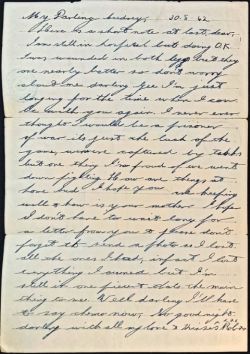 My Darling Audrey, 30.8.42
Here is a short note at last, dear,
I'm still in hospital but doing O.K.
I was wounded in both legs but they
are nearly better so don't worry
about me darling for I'm just
longing for the time when I can
be with you again. I never ever
thought I would be a prisoner
of war its just the luck of the
game, we were captured by tanks
but one thing I'm proud of we went
down fighting. How are things at
home and I hope you are keeping
well & how is your mother. I hope
I don't have to wait long for
a letter from you & please don't
forget to send a photo as I lost
all the ones I had, in fact I lost
everything I owned but I'm
still in one piece thats the main
thing to me. Well darling I'll have
to say cheerio now, So goodnight
darling with all my love & kisses